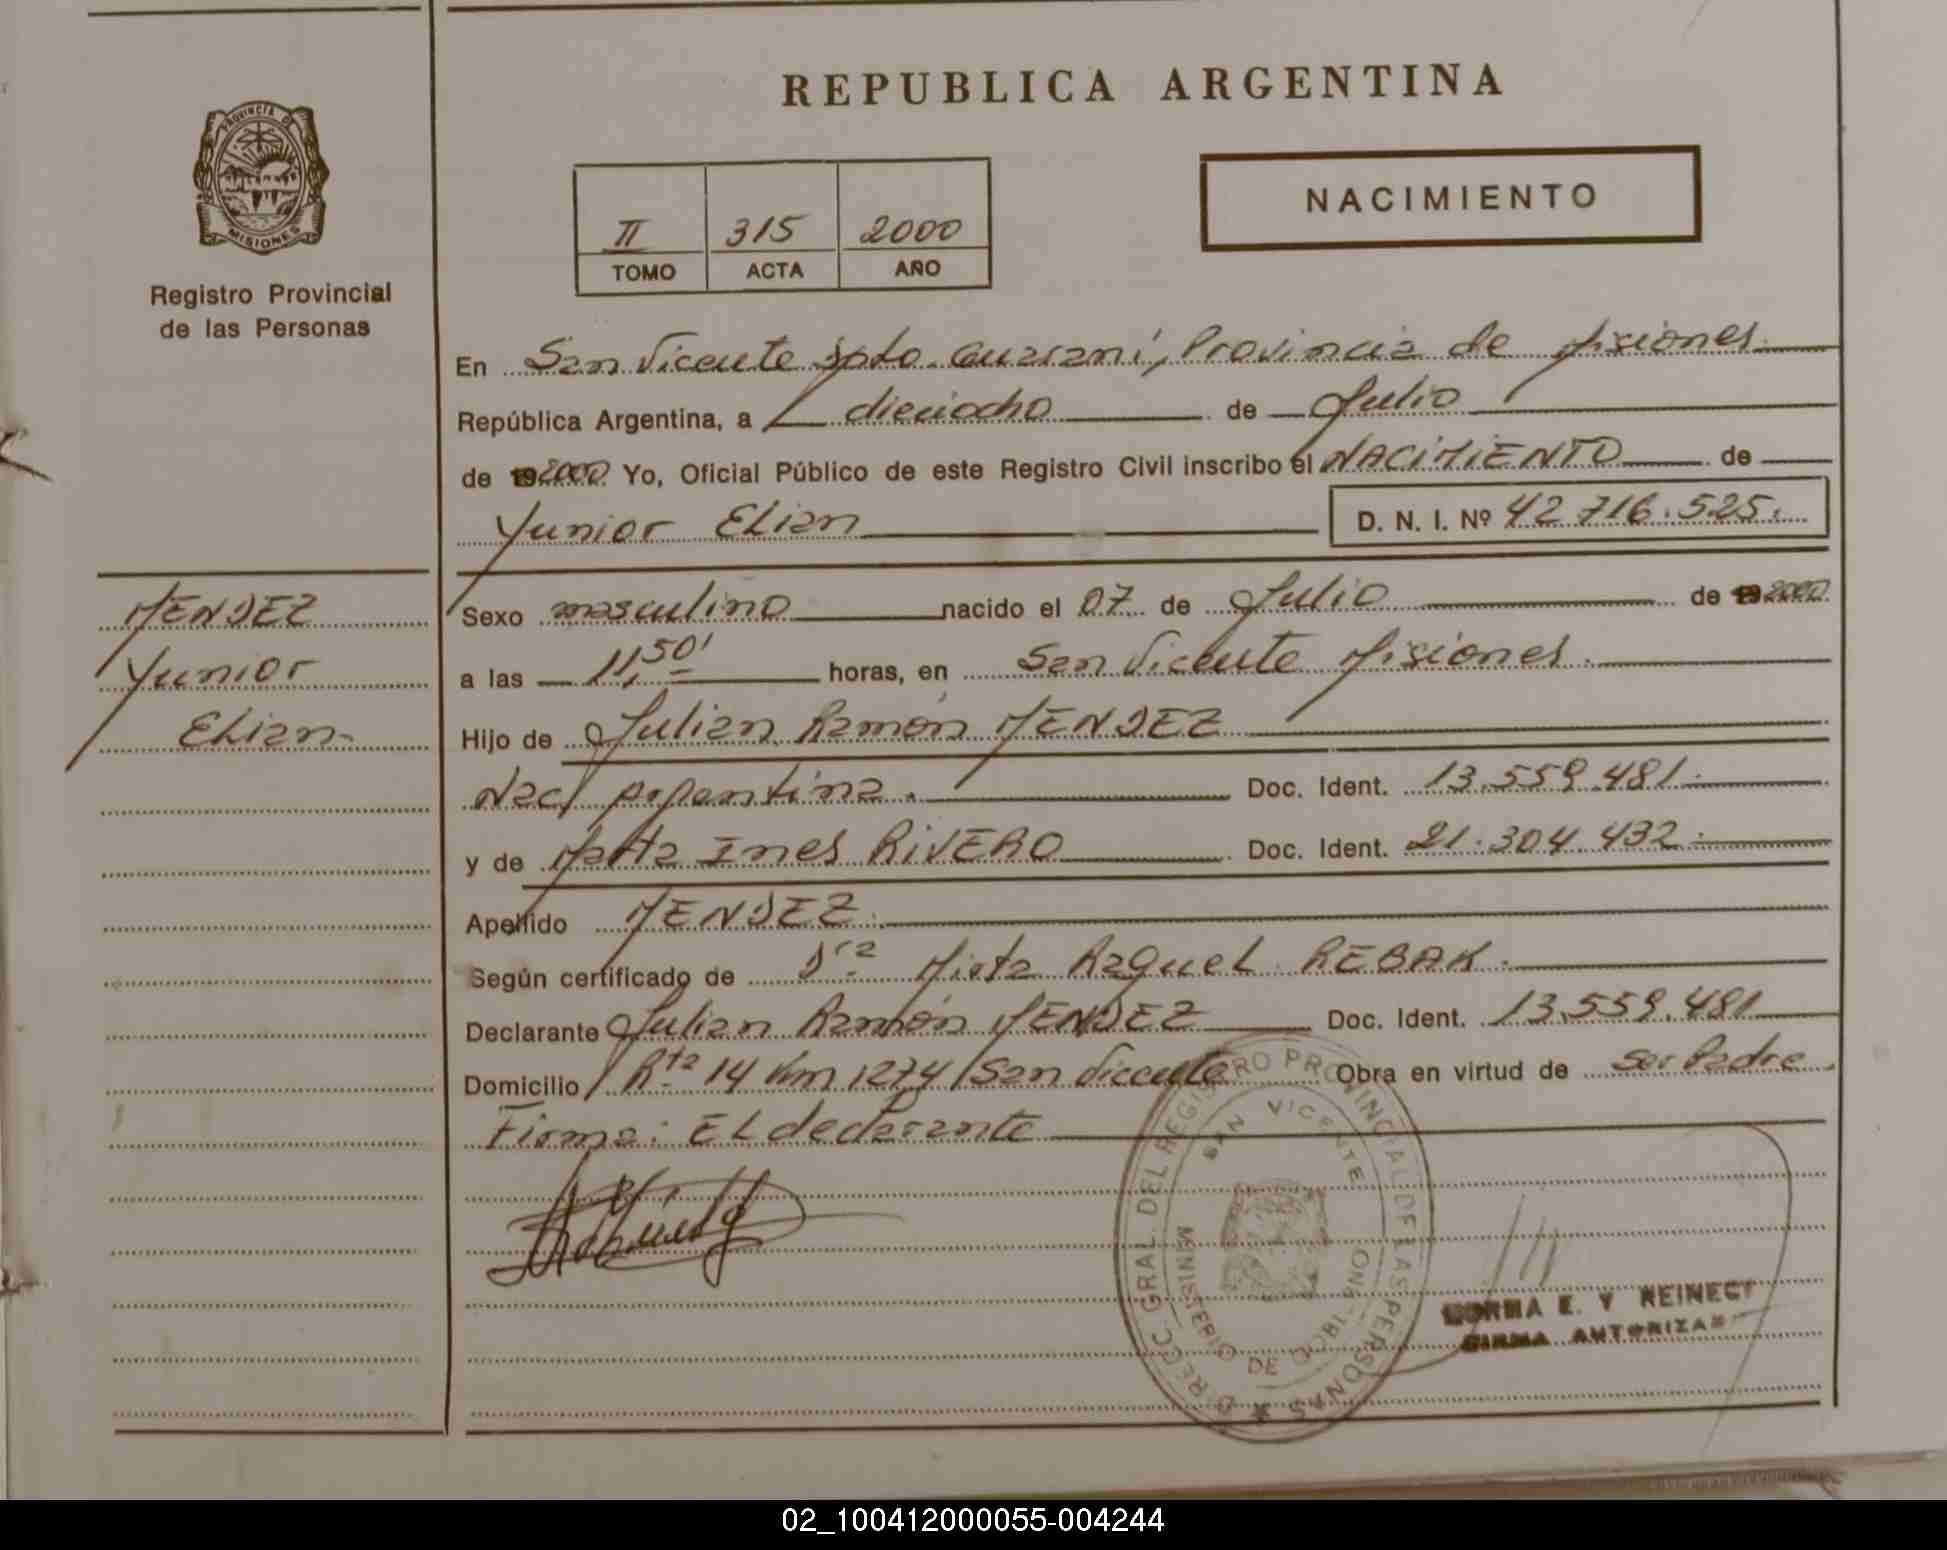 REPUBLICA ARGENTINA
PROVINCIA DE
MISIONES
Registro Provincial
de las Personas
II 315 2000
TOMO ACTA AÑO
NACIMIENTO
En San Vicente Dpto. Guaraní, Provincia de Misiones
República Argentina, a dieciocho de Julio
de 192000 Yo, Oficial Público de este Registro Civil inscribo el NACIMIENTO de
Yunior Elian D. N. I. Nº 42 716.525.
MENDEZ
Yunior
Elian
Sexo masculino nacido el 07 de Julio de 19 2000
a las 11,50' horas, en San Vicente Misiones.
Hijo de Julian Ramón MENDEZ
Nac/ argentina. Doc. Ident. 13.559.481
y de Marta Ines RIVERO Doc. Ident. 21.304.432
Apellido MENDEZ
Según certificado de Dra Mirta Raquel REBAK
Declarante Julian Ramón MENDEZ Doc. Ident. 13.559.481
Domicilio Rta 14 Km 1274 San Vicente Obra en virtud de Ser Padre.
Firma: EL declarante
DIRECC. GRAL. DEL REGISTRO PROVINCIAL DE LAS PERSONAS
SAN VICENTE
MINISTERIO DE GOBIERNO
NORMA E. V REINECK
FIRMA AUTORIZADA
02_100412000055-004244